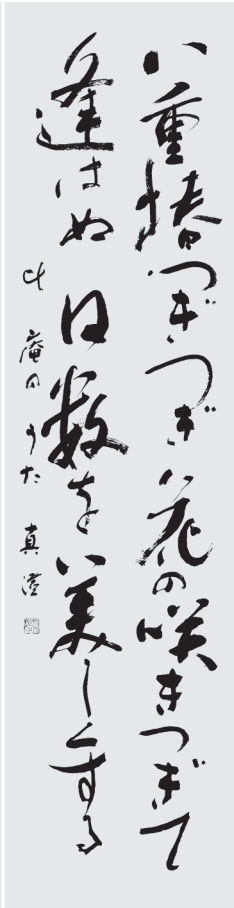 八重椿つぎつぎ花の咲きつぎて
逢はぬ日数をいい美しくする
庵のうた 真澄